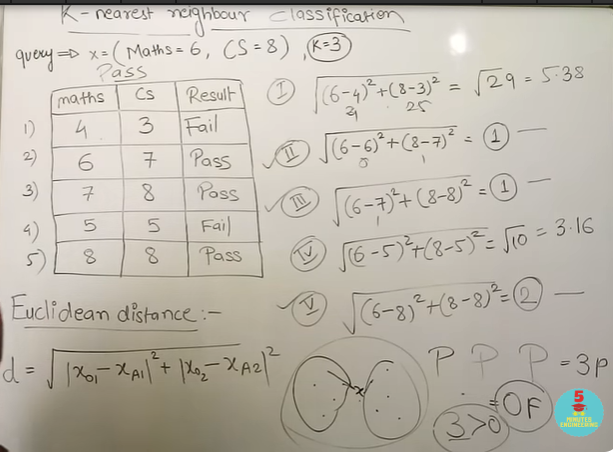 K-nearest neighbour classification
query ⇒ x = (Maths = 6, CS = 8), K=3
Pass
maths CS Result
1) 4 3 Fail
2) 6 7 Pass
3) 7 8 Pass
4) 5 5 Fail
5) 8 8 Pass
Euclidean distance :-
d = √|x₀₁ - x_A1|² + |x₀₂ - x_A2|²
I √(6-4)² + (8-3)² = √29 = 5.38
25
✓ II √(6-6)² + (8-7)² = 1 —
0 1
✓ III √(6-7)² + (8-8)² = 1 —
1
IV √(6-5)² + (8-5)² = √10 = 3.16
✓ V √(6-8)² + (8-8)² = 2 —
x
P P P = 3P
= 0F
3>0
5
MINUTES
ENGINEERING